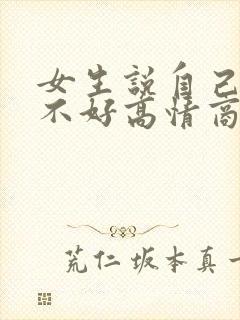 女生説自己
不好高情商
荒仁坂本真一